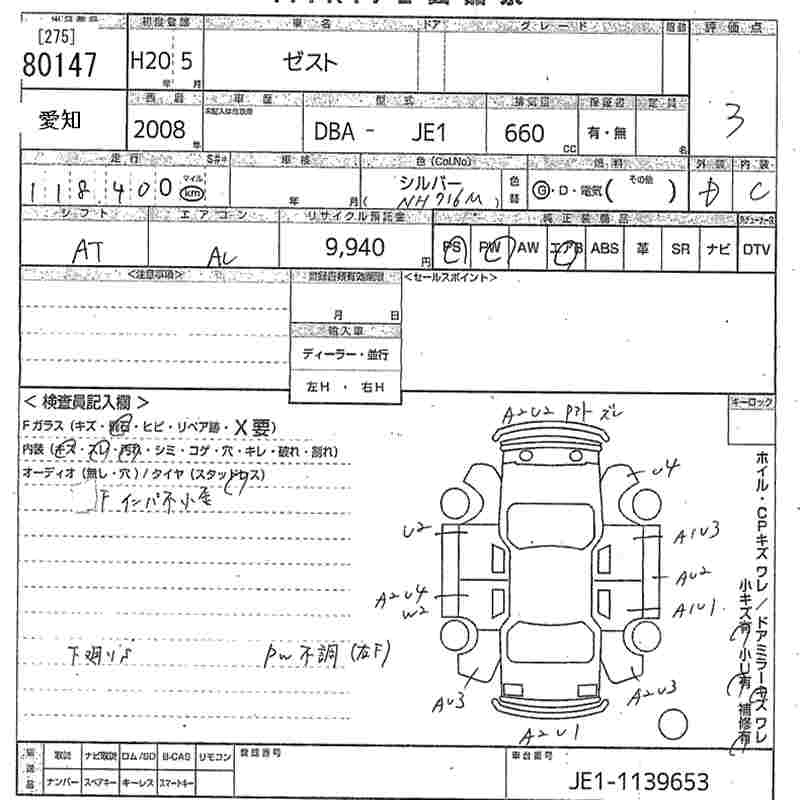 [275]
80147
初度登録
車名
ドア
グレード
評価点
H20 5
年 月
ゼスト
3
愛知
車歴
型式
排気量
定員
2008 年
DBA - JE1
660 cc
有・無
名
走行
車検
色(Col.No)
燃料
外装
内装
118,400
マイル
km
年 月
シルバー
NH716M
色替
G・D・電気( その他 )
D
C
シフト
エアコン
リサイクル預託金
純正装備品
AT
AC
9,940 円
PS
PW
AW
エアB
ABS
革
SR
ナビ
DTV
<注意事項>
<セールスポイント>
月 日
輸入車
ディーラー・並行
左H ・ 右H
<検査員記入欄>
キーロック
Fガラス(キズ・飛石・ヒビ・リペア跡・X要)
内装(キズ・スレ・汚れ・シミ・コゲ・穴・キレ・破れ・割れ)
オーディオ(無し・穴)/タイヤ(スタッドレス)
A2U2
U4
U2
A1U3
AU2
A2U4
W2
A1U1
AU3
A2U3
A2U1
PW不調(左F)
ホイル・CPキズワレ/ドアミラーキズワレ
小キズ有 小U有 補修有
取説
ナビ取説
ロム/SD
B-CAS
リモコン
登録番号
車台番号
ナンバー
スペアキー
キーレス
スマートキー
JE1-1139653